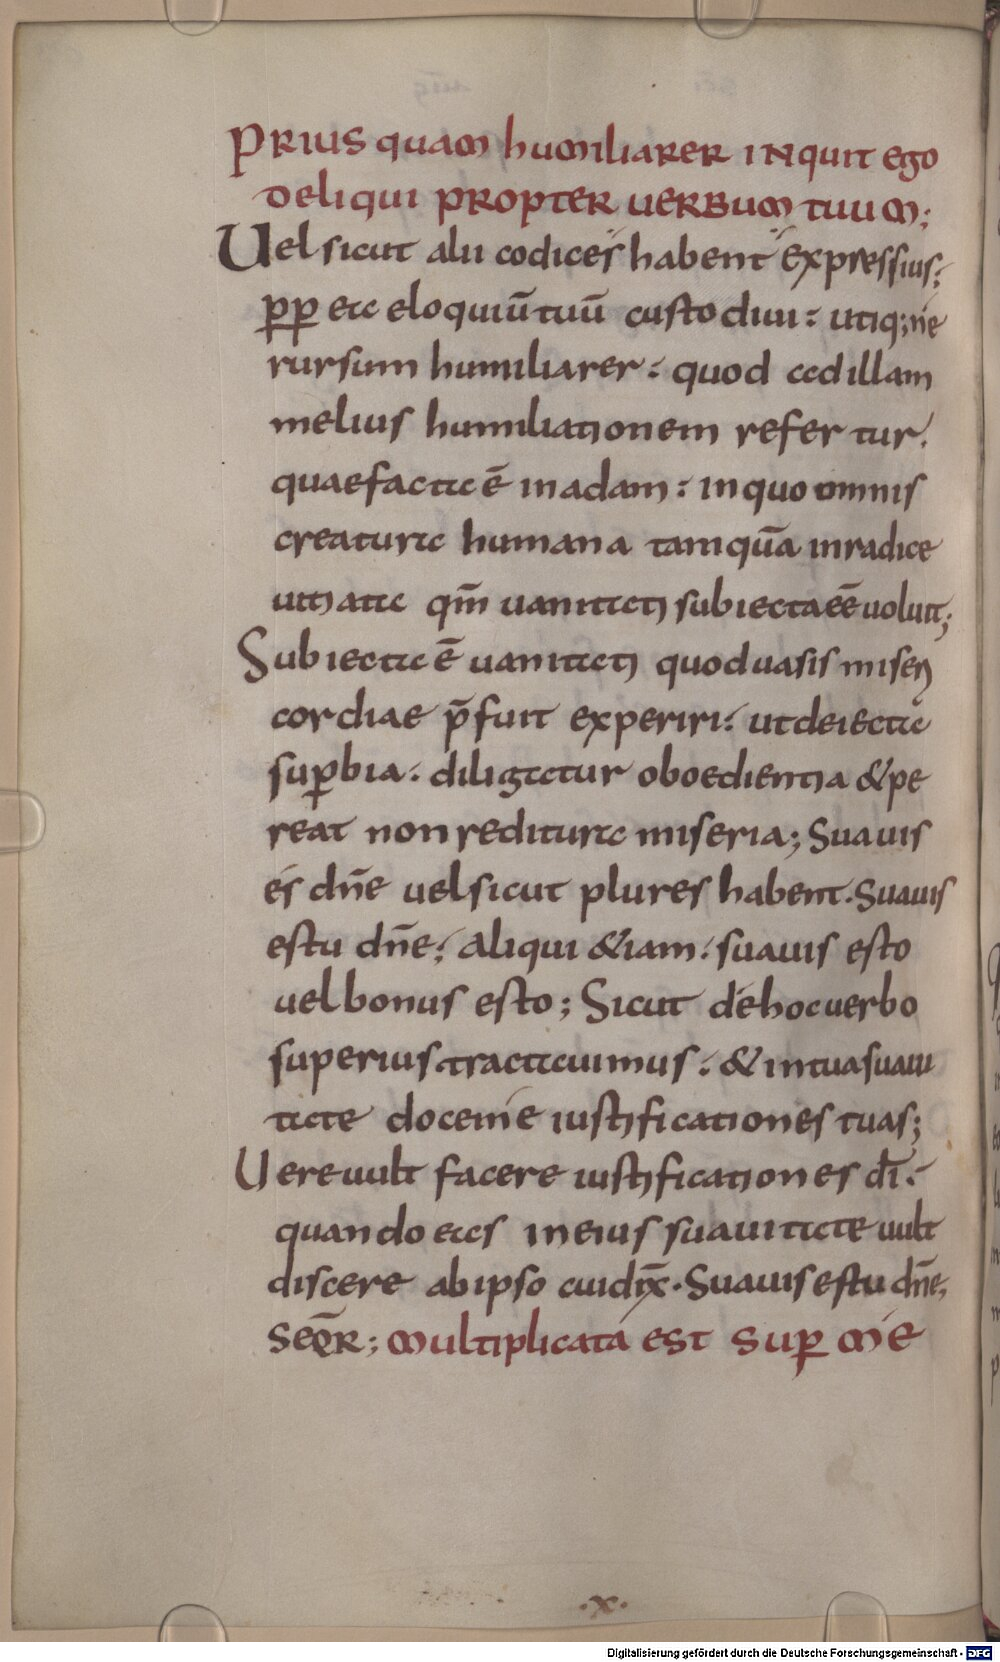 prius quam humiliarer inquit ego
deliqui propter uerbum tuum;
Uel sicut alii codices habent expressius;
pp ea eloquiū tuū custodiui: utiq; ne
rursum humiliarer: quod ad illam
melius humiliationem refertur.
quae facta ē in adam: in quo omnis
creatura humana tamquā in radice
uitiata qm̄ uanitati subiecta eē uoluit;
Subiecta ē uanitati quod uasis miseri
cordiae p̄fuit experiri: ut deiecta
sup̱bia. diligatur oboedientia & pe
reat non reditura miseria; Suauis
es dn̄e uel sicut plures habent. Suauis
es tu dn̄e; Aliqui &iam: suauis esto
uel bonus esto; Sicut de hoc uerbo
superius tractauimus: & in tua suaui
tate doce me iustificationes tuas;
Uere uult facere iustificationes dī:
quando eas in eius suauitate uult
discere ab ipso cui dix̄. Suauis es tu dn̄e,
seqr̄; multiplicata est sup̱ me
.x.
Digitalisierung gefördert durch die Deutsche Forschungsgemeinschaft - DFG